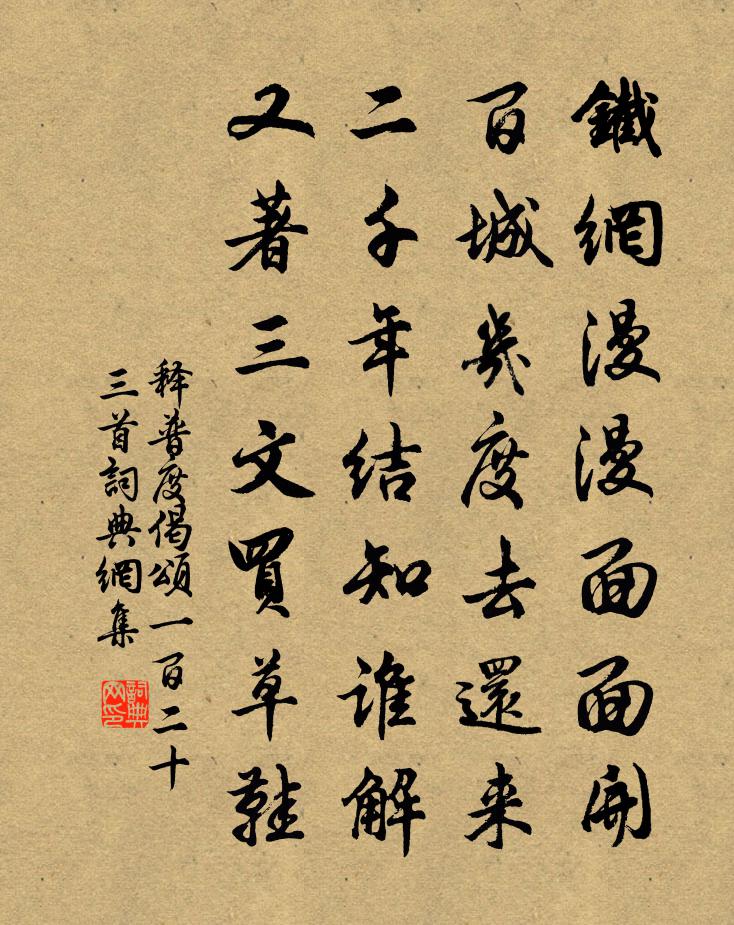 鐵網漫漫面面開
百城幾度去還来
二千年結知誰解
又著三文買草鞋
释普度偈頌一百二十
三首詞典網集
詞典网印